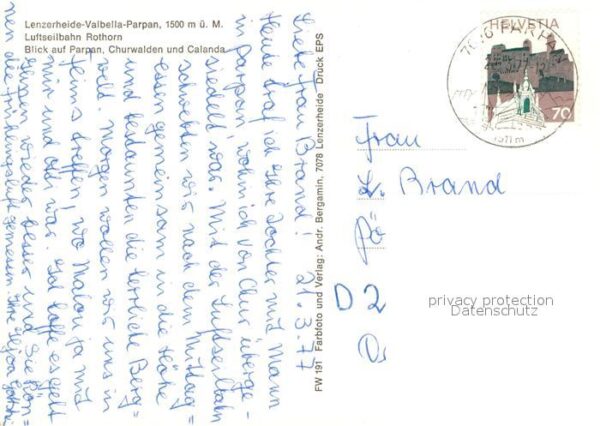 Lenzerheide-Valbella-Parpan, 1500 m ü. M.
Luftseilbahn Rothorn
Blick auf Parpan, Churwalden und Calanda
21.3.77
Liebe Frau Brand!
Heute traf ich Ihre Tochter und Mann
in Parpan, wohin ich von Chur überge=
siedelt war. Mit der Luftseilbahn
schwebten wir nach dem Mittag=
essen gemeinsam in die Höhe
und bestaunten die herrliche Berg=
welt. Morgen wollen wir uns in
treffen, wo Malou ja mit
mir und war. Ich hoffe es geht
wieder besser und Sie kön=
nen die Frühlingsluft geniessen. Ihre
FW 191 Farbfoto und Verlag: Andr. Bergamin, 7078 Lenzerheide Druck EPS
HELVETIA
70
1511 m
Frau
L. Brand
D 2
privacy protection
Datenschutz